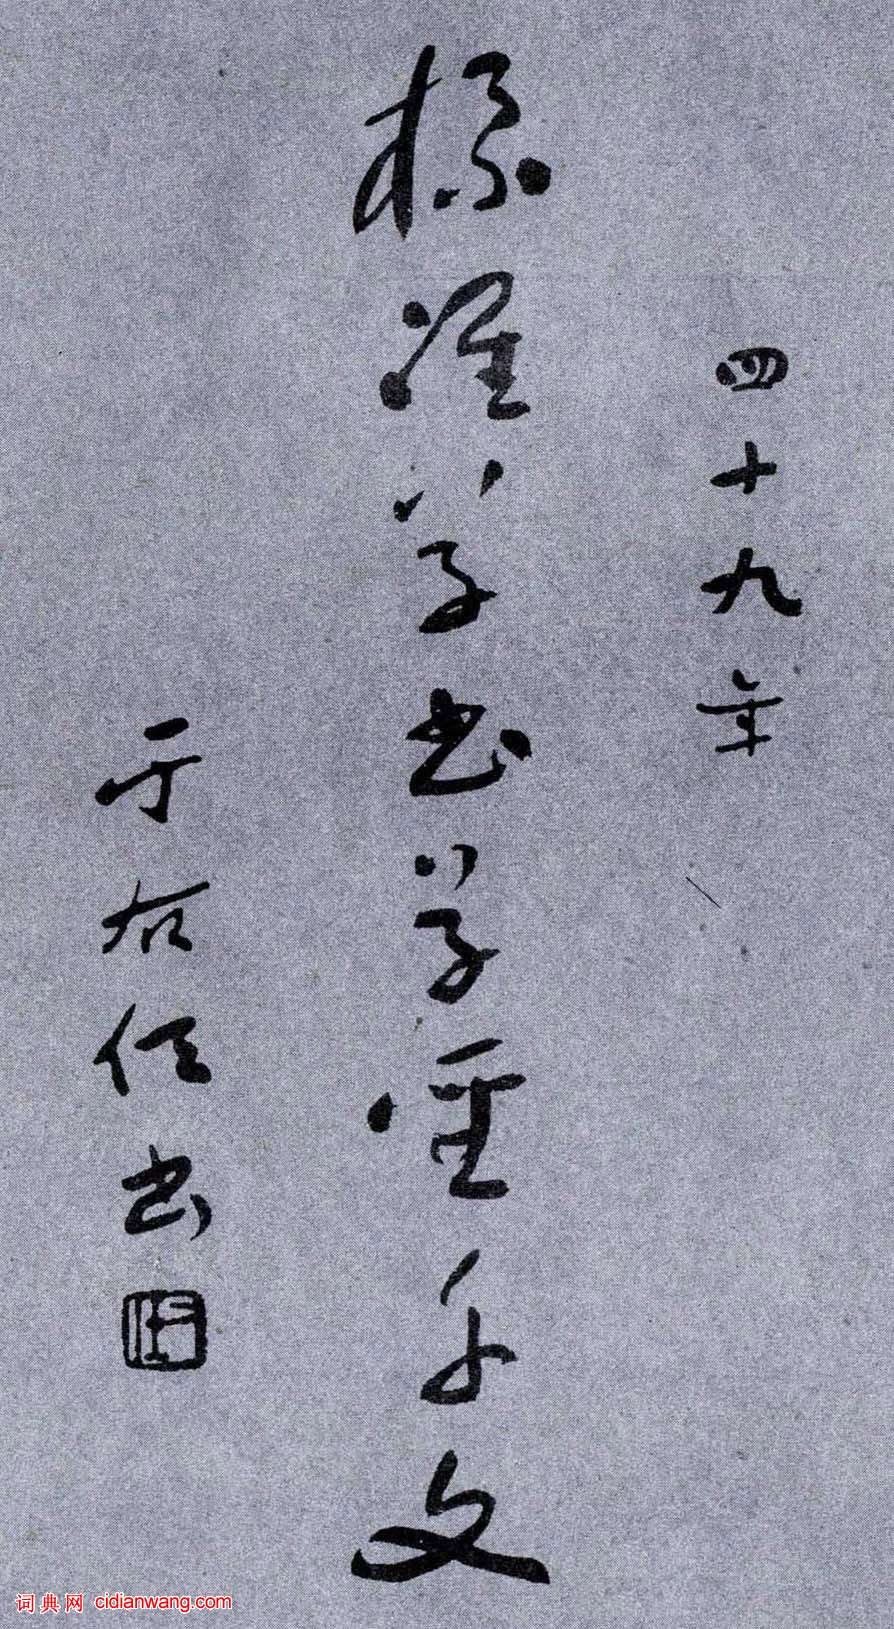 四十九年
標準草書草聖千文
于右任書
右任
词典网 cidianwang.com